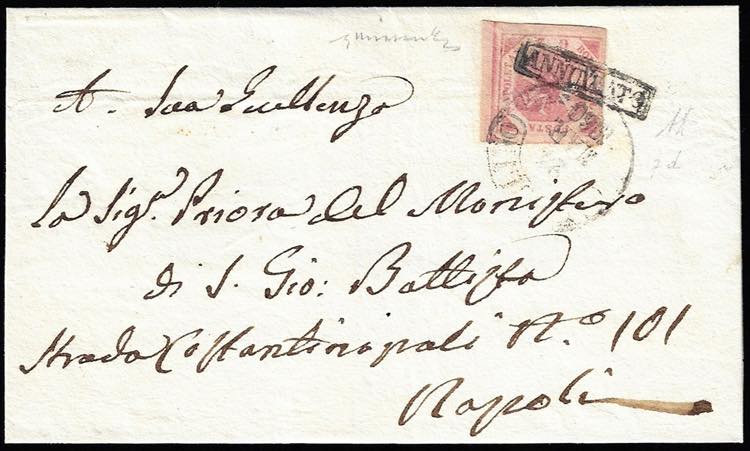 ANNULLATO
A. Sua Eccellenza
La Sig.ª Priora del Monistero
di S. Gio: Battista
Strada Costantinopoli N.º 101
Napoli